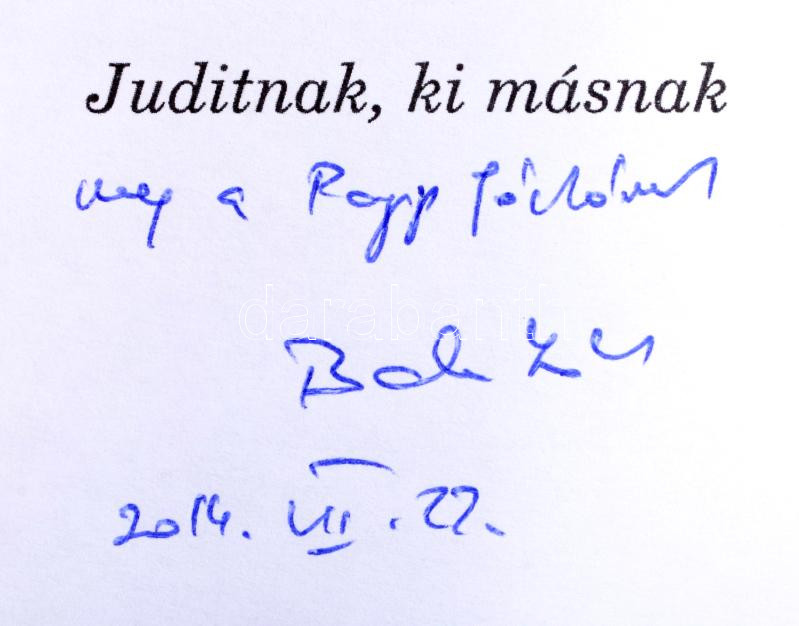 Juditnak, ki másnak
meg a Rapp
darabanth
2014. VII. 22.